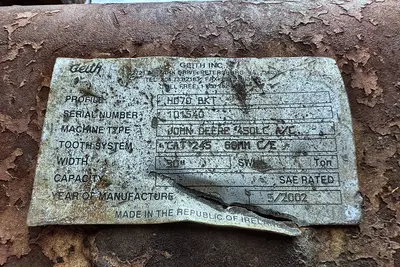 Geith GEITH INC
PROFILE HD70 BKT
SERIAL NUMBER 101540
MACHINE TYPE JOHN DEERE 450LC A/C
TOOTH SYSTEM CAT 245 60MM C/E
WIDTH 30" SWL Ton
CAPACITY SAE RATED
YEAR OF MANUFACTURE 5/2002
MADE IN THE REPUBLIC OF IRELAND